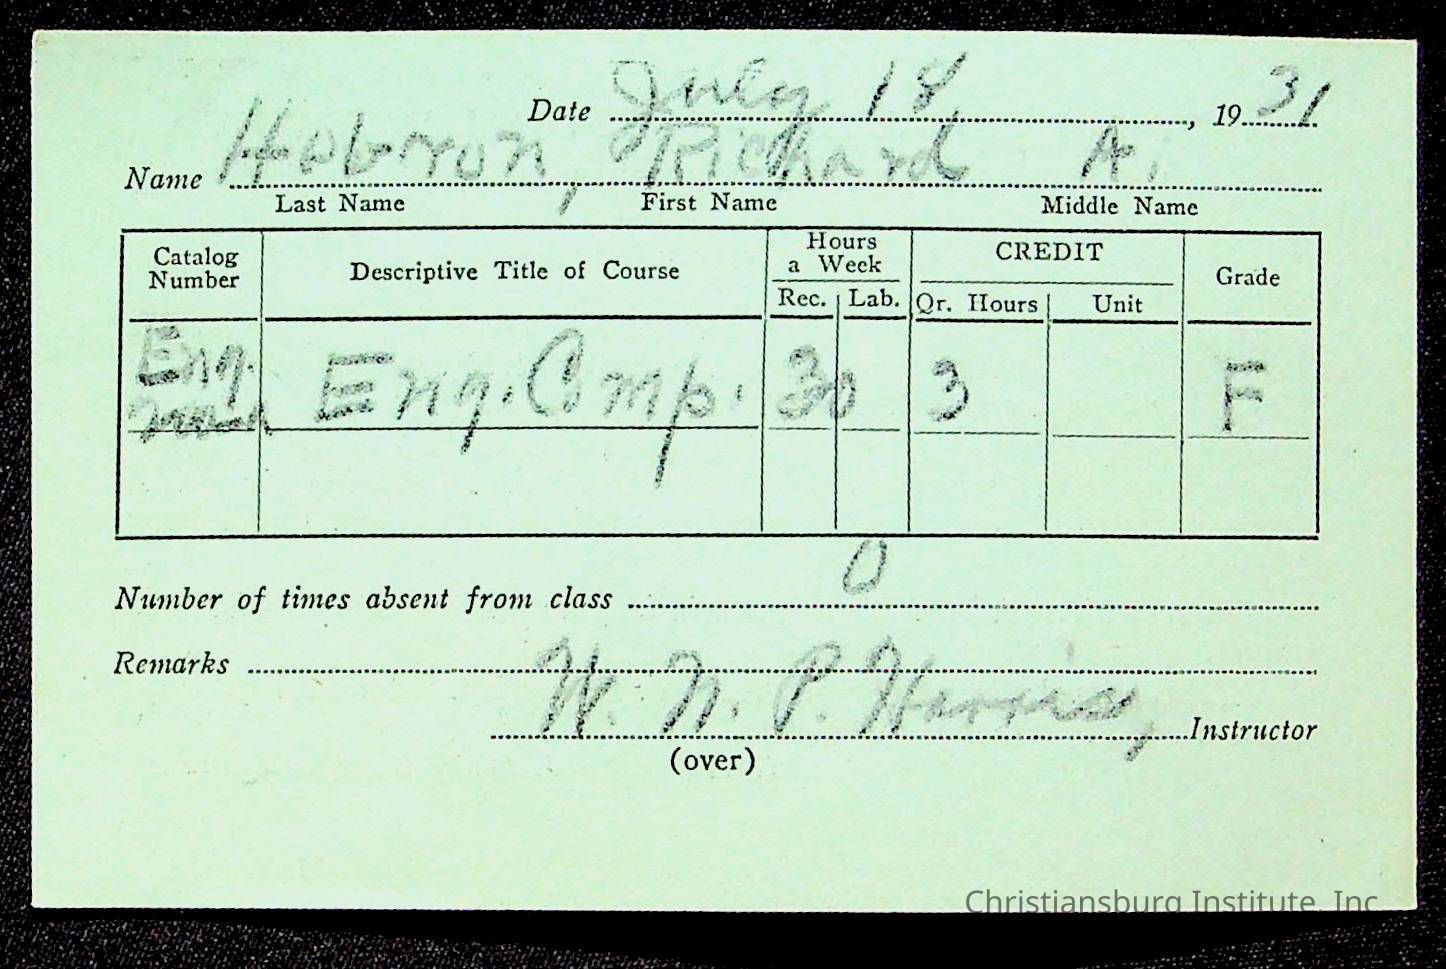 Date July 18, 1931
Name Hobron, Richard A.
Last Name First Name Middle Name
Catalog Number Descriptive Title of Course Hours a Week Rec. Lab. CREDIT Qr. Hours Unit Grade
Eng. Eng. Comp. 30 3 F
Number of times absent from class 0
Remarks
W. N. P. Harris, Instructor
(over)
Christiansburg Institute, Inc